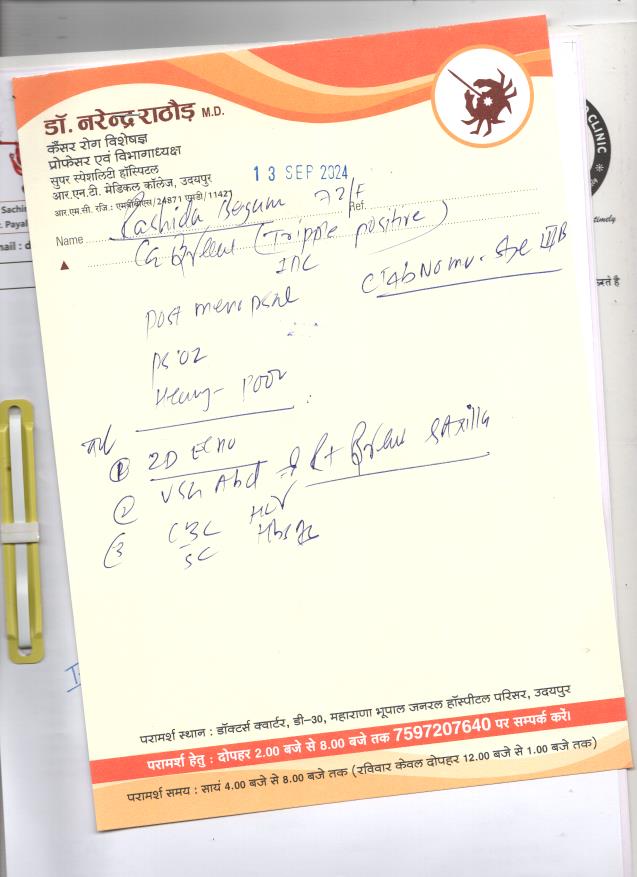 डॉ. नरेन्द्र राठौड़ M.D.
कैंसर रोग विशेषज्ञ
प्रोफेसर एवं विभागाध्यक्ष
सुपर स्पेशलिटी हॉस्पिटल
आर.एन.टी. मेडिकल कॉलेज, उदयपुर
आर.एम.सी. रजि.: एमबीबीएस/24871 एमडी/11421
13 SEP 2024
Name Rashida Begum 72/F Ref.
Ca Breast (Tripple positive)
IDC
CT4bN0M0 - Stge IIIB
post menopsal
PS 02
Heary - poor
① 2D Echo
② USG Abd & Rt Breast & Axilla
③ CBC HCV
SC HbsAg
परामर्श स्थान : डॉक्टर्स क्वार्टर, डी-30, महाराणा भूपाल जनरल हॉस्पीटल परिसर, उदयपुर
परामर्श हेतु : दोपहर 2.00 बजे से 8.00 बजे तक 7597207640 पर सम्पर्क करें।
परामर्श समय : सायं 4.00 बजे से 8.00 बजे तक (रविवार केवल दोपहर 12.00 बजे से 1.00 बजे तक)
Sachi
Payal
nail : d
CLINIC
timely
करते है